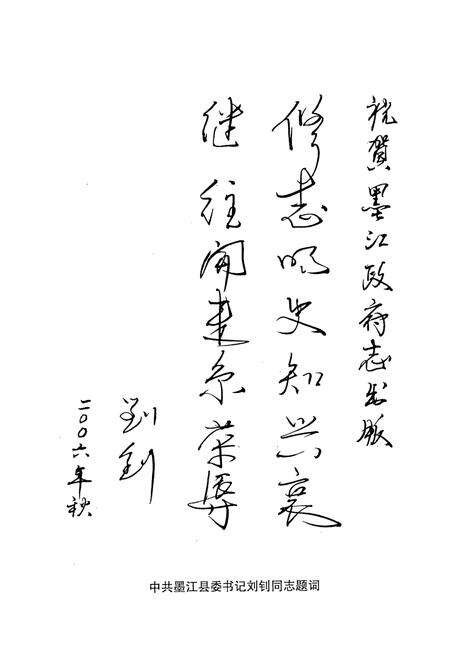 祝賀墨江政府志出版
修志明史知兴衰
继往開来系荣辱
劉钊
二〇〇六年秋
中共墨江县委书记刘钊同志题词